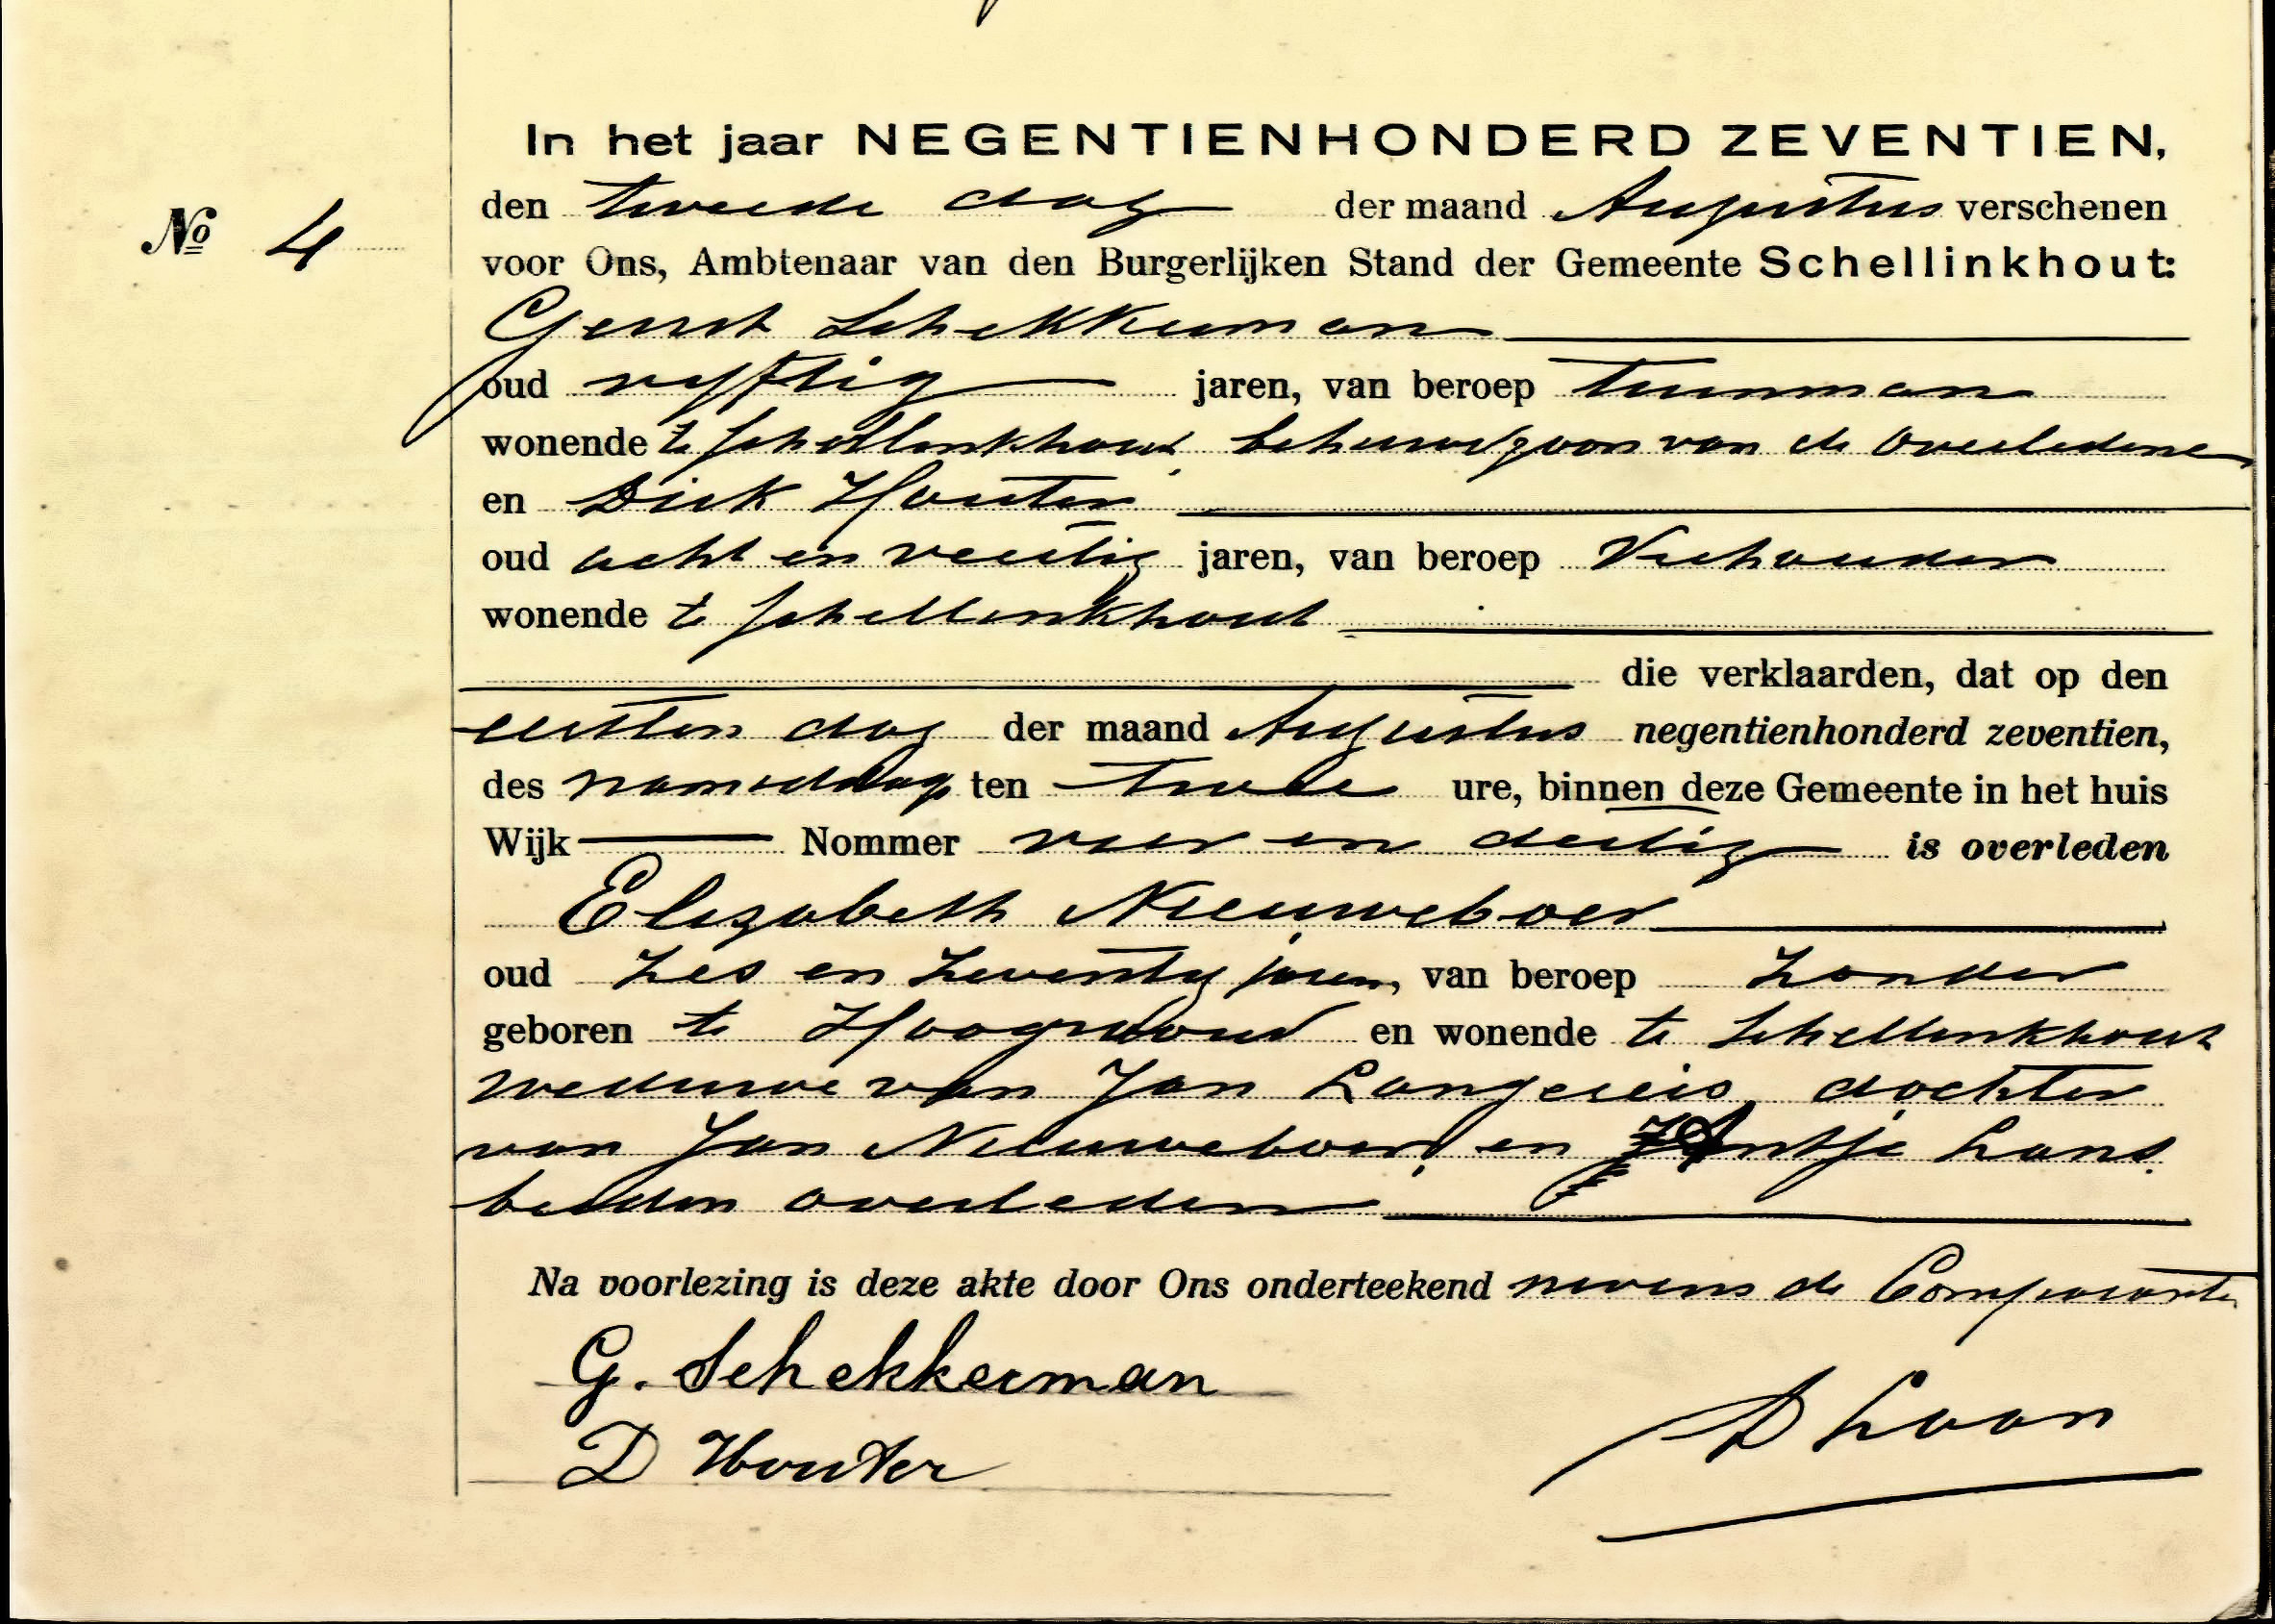 In het jaar NEGENTIENHONDERD ZEVENTIEN,
den tweede dag der maand Augustus verschenen
No 4
voor Ons, Ambtenaar van den Burgerlijken Stand der Gemeente Schellinkhout:
Gerrit Schekkerman
oud vyftig jaren, van beroep tuinman
wonende te Schellinkhout, behuwdzoon van de overledene
en Dirk Houter
oud acht en veertig jaren, van beroep Veehouder
wonende te Schellinkhout
die verklaarden, dat op den
eersten dag der maand Augustus negentienhonderd zeventien,
des namiddags ten twee ure, binnen deze Gemeente in het huis
Wijk Nommer vier en dertig is overleden
Elizabeth Nieuweboer
oud zes en zeventig jaren, van beroep zonder
geboren te Hoogwoud en wonende te Schellinkhout
weduwe van Jan Langereis, dochter
van Jan Nieuweboer, en Antje Lans
beiden overleden
Na voorlezing is deze akte door Ons onderteekend nevens de Comparanten
G. Schekkerman
D Houter
D Loon